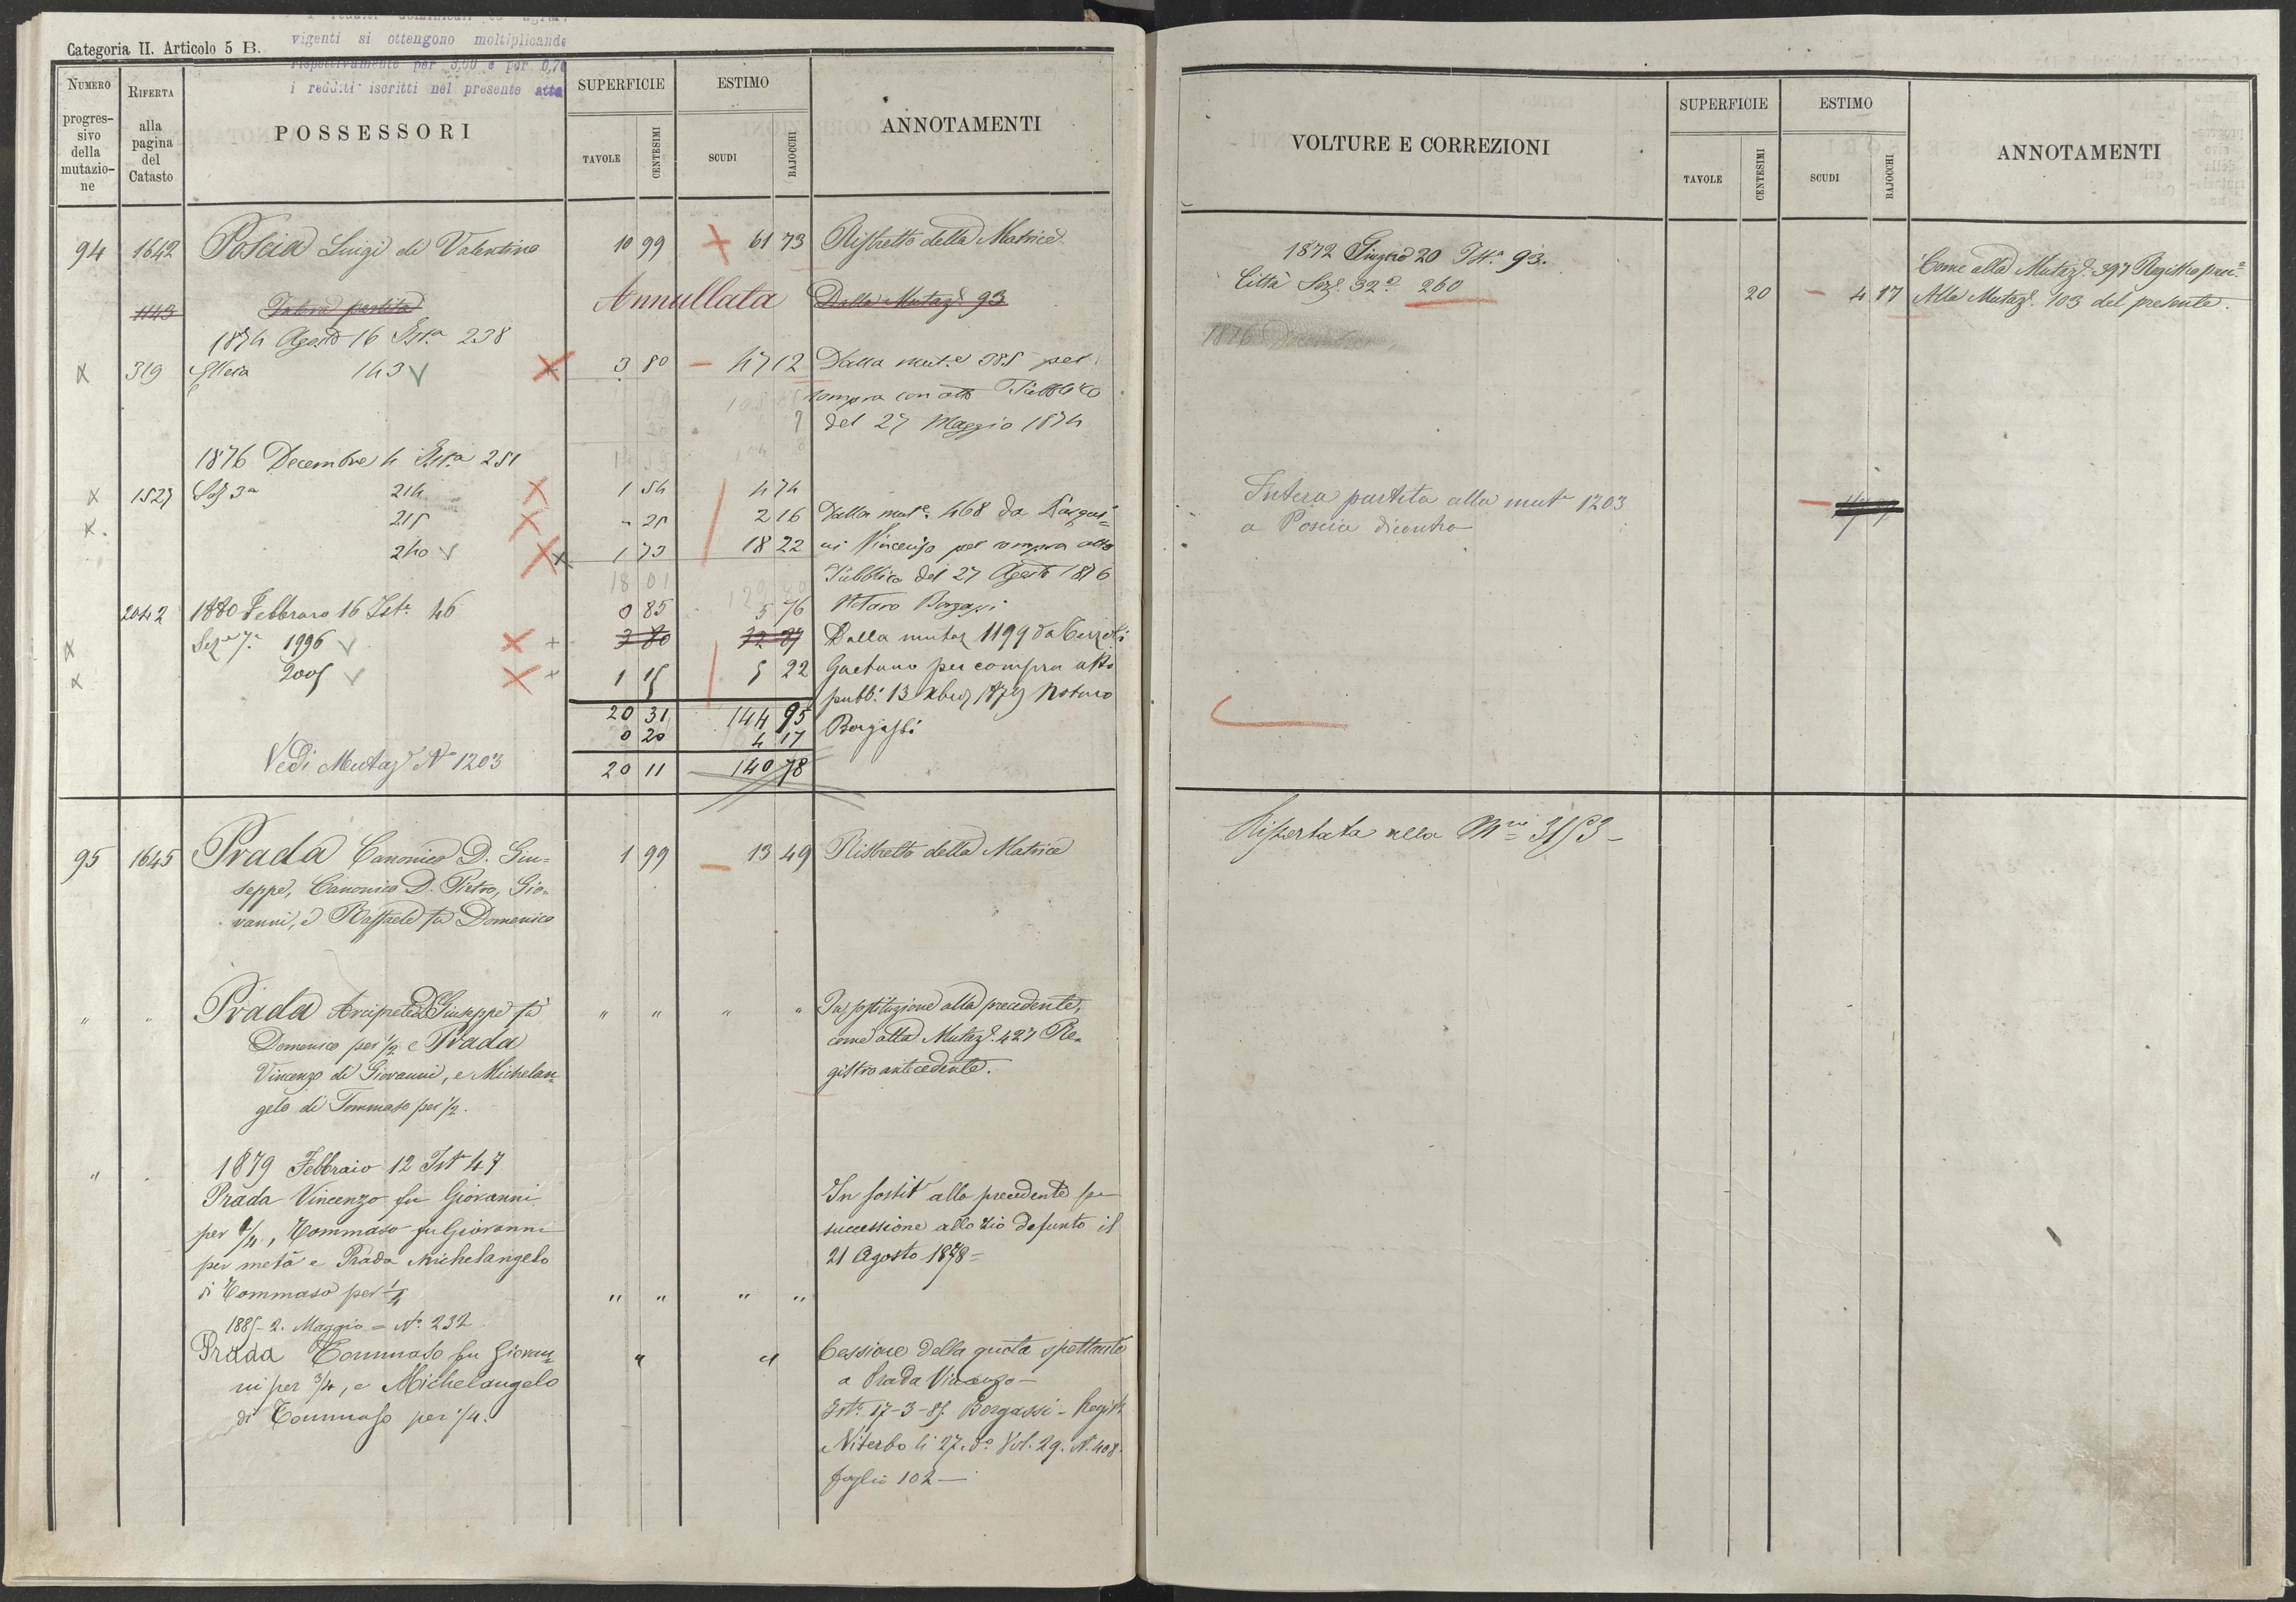 Categoria II. Articolo 5 B.
vigenti si ottengono moltiplicando
rispettivamente per 3,00 e per 0,70
i redditi iscritti nel presente atto
NUMERO progres-sivo della mutazio-ne
RIFERTA alla pagina del Catasto
POSSESSORI
SUPERFICIE
TAVOLE CENTESIMI
ESTIMO
SCUDI BAJOCCHI
ANNOTAMENTI
94 1642 Poscia Luigi di Valentino 10 99 61 73 Ristretto della Matrice
1143 Intera partita Annullata Dalla Mutaz.e 93
1874 Agosto 16 Ist.a 238
319 143 3 80 Dalla mut.e 385 per
compra con atto Pubblico
del 27 Maggio 1874
1876 Decembre 4 Ist.a 251
1527 Sez 3a 214 1 54 4 74
215 - 25 2 16 Dalla mut.e 468 da
240 1 73 18 22 Vincenzo per compra atto
Pubblico del 27 Agosto 1876
2042 1880 Febbraro 16 Ist.a 46 0 85 5 76 Notaro Borgassi
Sez.e 7.a 1996 3 80 Dalla mutaz 1199 da
2005 1 15 5 22 Gaetano per compra atto
pubb. 13 Xbre 1879 Notaro
20 31 144 95 Borgassi
0 20 4 17
Vedi Mutaz N° 1203 20 11 140 78
95 1645 Prada Canonico D. Giu= 1 99 13 49 Ristretto della Matrice
seppe, Canonico D. Pietro, Gio=
vanni, e Raffaele fu Domenico
" " Prada Arciprete D. Giuseppe fu " " " " In sostituzione alla precedente,
Domenico per 1/2 e Prada come alla Mutaz.e 427 Re=
Vincenzo di Giovanni, e Michelan= gistro antecedente.
gelo di Tommaso per 1/2.
" 1879 Febbraio 12 Ist 47
Prada Vincenzo fu Giovanni In sostit alla precedente per
per 1/4, Tommaso fu Giovanni successione allo zio defunto il
per metà e Prada Michelangelo 21 Agosto 1878 =
di Tommaso per 1/4 " " " "
1885 - 2. Maggio = N° 232
Prada Tommaso fu Giovan= " " Cessione della quota spettante
ni per 3/4, e Michelangelo a Prada Vincenzo -
di Tommaso per 1/4. Ist.o 17-3-85 Borgassi - Regist
Viterbo li 27. d.o Vol. 29. N. 408.
foglio 102 -
VOLTURE E CORREZIONI
SUPERFICIE
TAVOLE CENTESIMI
ESTIMO
SCUDI BAJOCCHI
ANNOTAMENTI
1872 Giugno 20 Ist.a 93. Come alla Mutaz.e 397 Registro prec.e
Città Sez.e 32.a 260 20 4 17 Alla Mutaz.e 103 del presente.
1876
Intera partita alla mut.e 1203
a Poscia dicontro
Riportata alla N.ri 3153 -